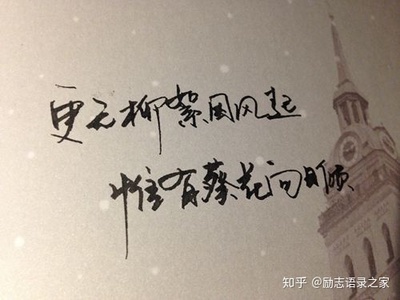 更无柳絮因风起
惟有葵花向日倾
知乎 @励志语录之家